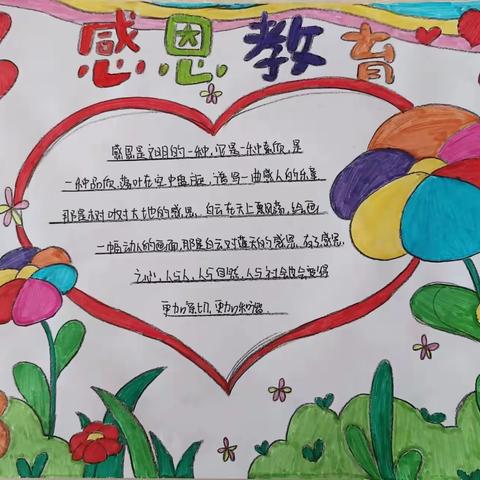 感恩教育
感恩是文明的一种,它是一种素质,是
一种品质,落叶在空中盘旋,谱写一曲感人的乐章
那是树对大地的感恩,白云在天上飘荡,绘画
一幅动人的画面,那是白云对蓝天的感恩,有了感恩
之心,人与人,人与自然,人与社会也会变得
更加亲切,更加和谐